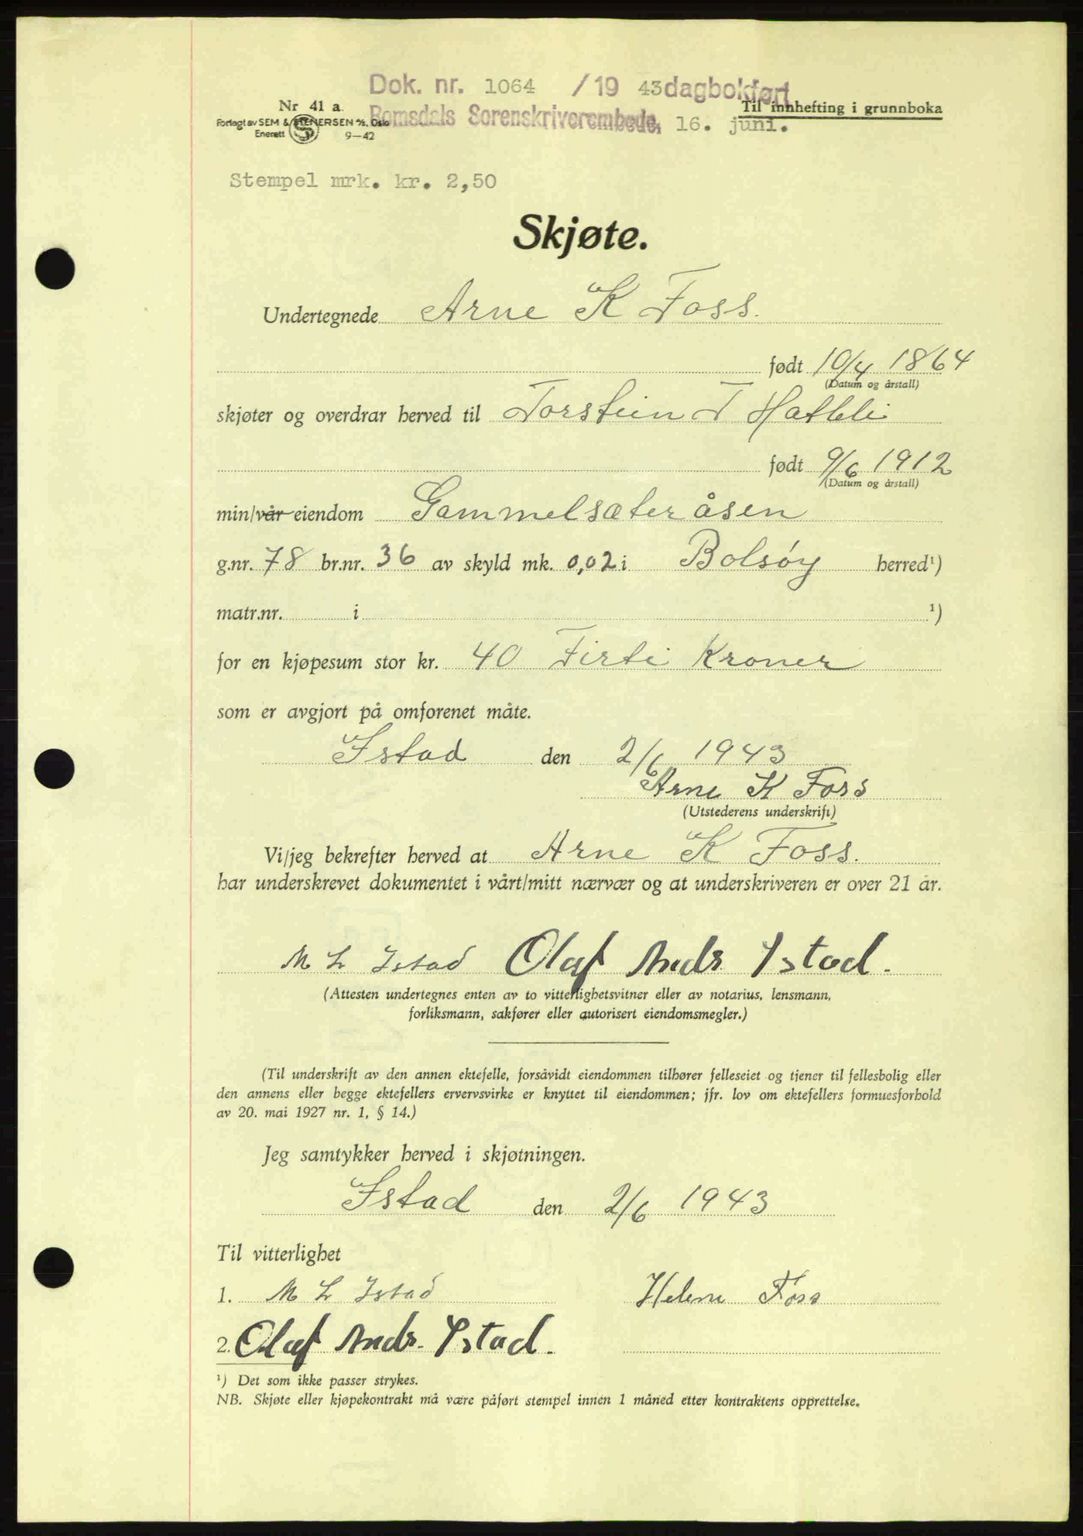 Dok. nr. 1064 /19 43 dagbokført
Nr 41 a
Til innhefting i grunnboka
Forlagt av SEM & STENERSEN A/S, Oslo
Romsdals Sorenskriverembede, 16. juni.
Enerett S 9-42
Stempel mrk. kr. 2,50
Skjøte.
Undertegnede Arne K Foss.
født 10/4 1864
(Datum og årstall)
skjøter og overdrar herved til Torstein T Hatleli
født 9/6 1912
(Datum og årstall)
min/vår eiendom Gammelsæteråsen
g.nr. 78 br.nr. 36 av skyld mk. 0,02 i Bolsøy herred¹)
matr.nr. i ¹)
for en kjøpesum stor kr. 40 Firti Kroner
som er avgjort på omforenet måte.
Istad den 2/6 1943
Arne K Foss
(Utstederens underskrift)
Vi/jeg bekrefter herved at Arne K Foss.
har underskrevet dokumentet i vårt/mitt nærvær og at underskriveren er over 21 år.
M L Istad Olaf Andr Istad.
(Attesten undertegnes enten av to vitterlighetsvitner eller av notarius, lensmann,
forliksmann, sakfører eller autorisert eiendomsmegler.)
(Til underskrift av den annen ektefelle, forsåvidt eiendommen tilhører felleseiet og tjener til fellesbolig eller
den annens eller begge ektefellers ervervsvirke er knyttet til eiendommen; jfr. lov om ektefellers formuesforhold
av 20. mai 1927 nr. 1, § 14.)
Jeg samtykker herved i skjøtningen.
Istad den 2/6 1943
Til vitterlighet
1. M L Istad Helene Foss
2. Olaf Andr. Istad.
¹) Det som ikke passer strykes.
NB. Skjøte eller kjøpekontrakt må være påført stempel innen 1 måned etter kontraktens opprettelse.